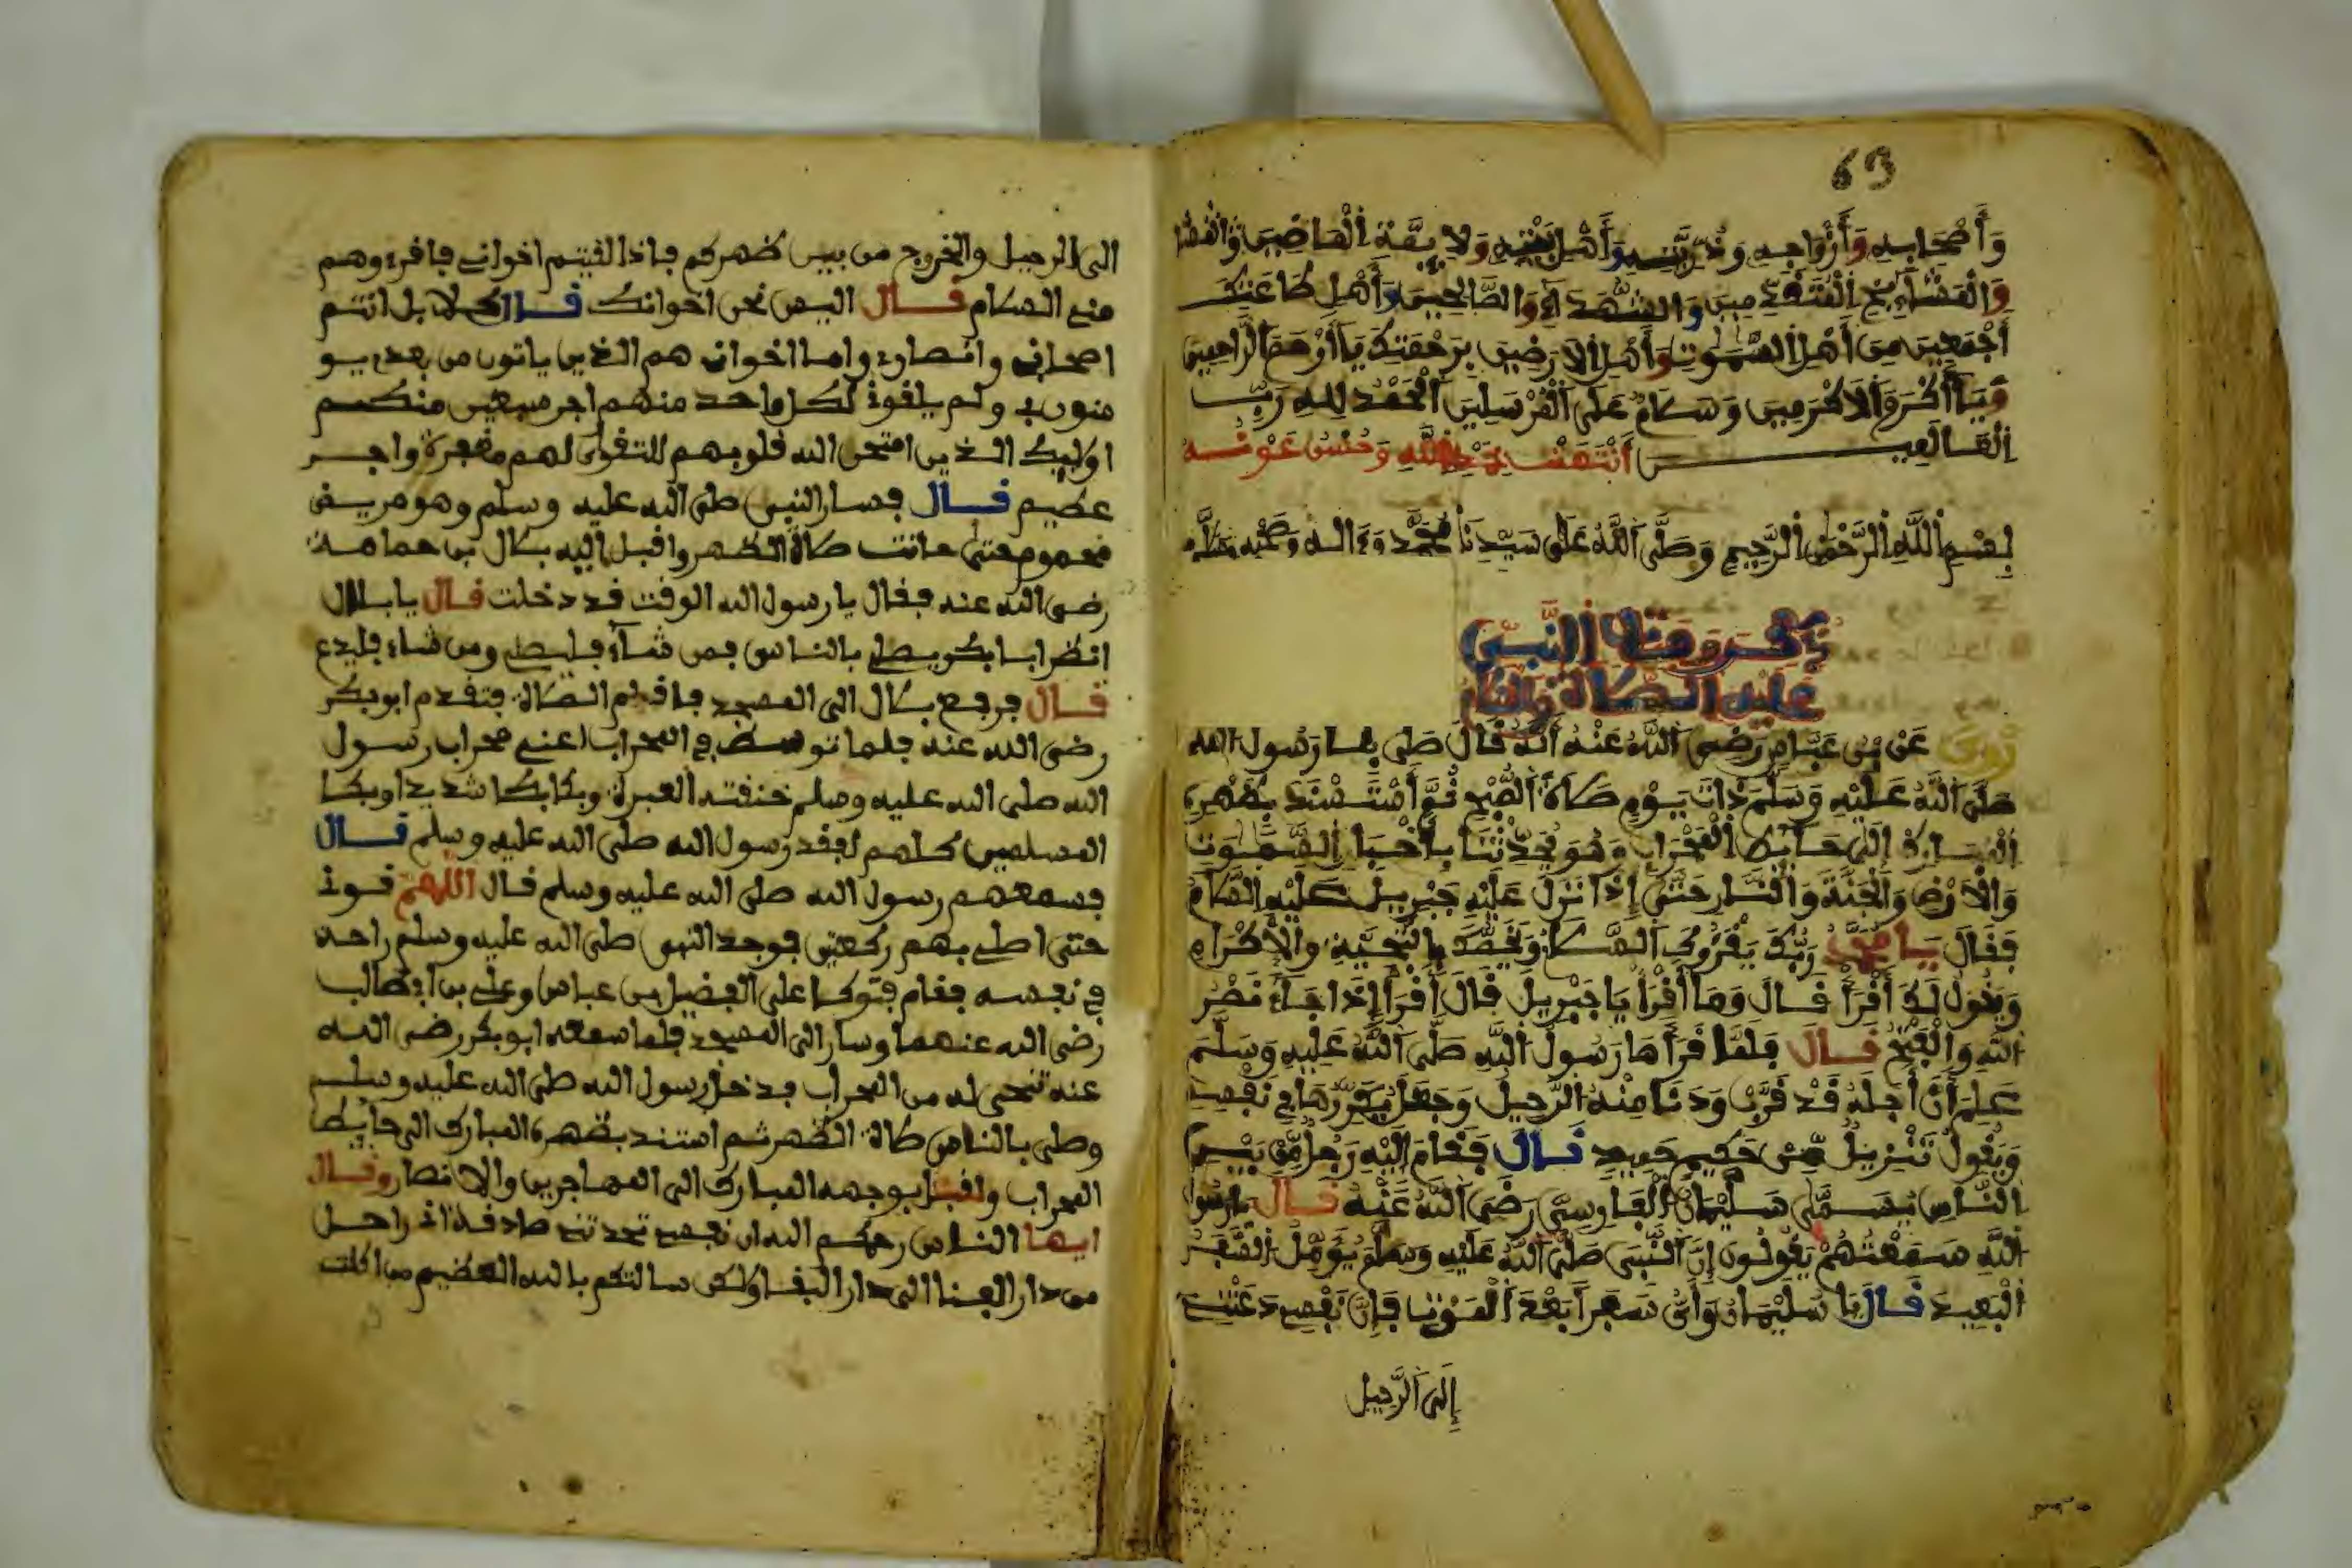 63
وَأَصْحَابِهِ وَأَزْوَاجِهِ وَذُرِّيَّتِهِ وَأَهْلِ بَيْتِهِ وَالْأَيِمَّةِ الْمَاضِيينَ
وَالْمَشَايِخِ الْمُتَقَدِّمِينَ وَالشُّهَدَاءِ وَالصَّالِحِينَ وَأَهْلِ طَاعَتِكَ
أَجْمَعِينَ مِنَ أَهْلِ السَّمَوَاتِ وَأَهْلِ الَارَضِينَ بِرَحْمَتِكَ يَا أَرْحَمَ الرَّاحِمِينَ
وَيَا أَكْرَمَ الَاكْرَمِينَ وَسَلَامٌ عَلَى الْمُرْسَلِينَ الْحَمْدُ لِلهِ رَبِّ
الْعَالَمِينَ أَنْتَهَتْ بِحَمْدِ اللَّهِ وَحُسْنِ عَوْنِهِ
بِسْمِ اللَّهِ الرَّحْمَنِ الرَّحِيمِ وَصَلَّى اللَّهُ عَلَى سَيِّدِنَا مُحَمَّد وَءَالِهِ وَصَحْبِهِ وَسَلَّم
ذِكْرُ وَفَاتِ النَّبِي
عَلَيْهِ الصَّلَاةُ وَالسَّلَام
رُوِيَ عَنْ بْنِ عَبَّاسٍ رَضِيَ اللَّهُ عَنْهُ أَنَّهُ قَالَ صَلَّى بِنَا رَسُولُ اللهِ
صَلَّى اللَّهُ عَلَيْهِ وَسَلَّمَ ذَاتَ يَوْمٍ صَلَاةَ الصُّبْحِ ثُمَّ أَسْتَسْنَدَ بِظَهْرِهِ
الْمُبَارَكِ إِلَى حَايِطِ الْمِحْرَابِ وَهُوَ يُحَدِّثُنَا بِأَخْبَارِ السَّمَوَاتِ
وَالَارْضِ وَالْجَنَّةِ وَالنَّارِ حَتَّى إِذَا نَزَلَ عَلَيْهِ جِبْرِيلُ عَلَيْهِ السَّلَامُ
فَقَالَ يَا مُحَمَّدُ رَبُّكَ يَقْرُوكَ السَّلَامُ وَيَخُصُّكَ بِالتَّحِيَّةِ وَالَاكْرَامِ
وَيَقُولُ لَكَ أَقْرَأْ قَالَ وَمَا أَقْرَأُ يَا جِبْرِيلُ قَالَ أَقْرَأْ إِذَا جَاءَ نَصْرُ
اللهِ وَالْفَتْحُ قَالَ فَلَمَّا قَرَأَهَا رَسُولُ اللهِ صَلَّى اللَّهُ عَلَيْهِ وَسَلَّمَ
عَلِمَ أَنَّ أَجَلَهُ قَدْ قَرُبَ وَدَنَا مِنْهُ الرَّحِيلُ وَجَعَلَ يُكَرِّرُهَا فِي نَفْسِهِ
وَيَقُولُ تَنْزِيلٌ مِّنْ حَكِيمٍ حَمِيدٍ قَالَ فَقَامَ إِلَيْهِ رَجُلٌ مِّنْ بَيْنِ
النَّاسِ يُسَمَّى سَلِيْمَانُ الْفَارِسِيُّ رَضِيَ اللَّهُ عَنْهُ قَالَ يَا رَسُولَ
اللهِ سَمِعْتُهُمْ يَقُولُونَ إِنَّ النَّبِيَ صَلَّى اللَّهُ عَلَيْهِ وَسَلَّمَ يُؤَمِّلُ السَّفَرَ
الْبَعِيدَ قَالَ يَا سَلِيْمَانُ وَأَيُّ سَفَرٍ أَبْعَدُ الْمَوْتِ فَإِنَّ نَفْسِي دَعَتْنِي
إِلَى الرَّحِيلِ
الى الرحيل والخروج من بين ظهركم فاذا لقيتم اخواني فاقرءوهم
مني السلام قال اليس نحن اخوانك قال كلا بل انتم
اصحابي وانصاري واما اخواني هم الذين ياتون من بعدي يو
منون بي ولم يلقوني لكل واحد منهم اجر سبعين منكم
اوليك الذين امتحن الله قلوبهم للتقوى لهم مغفرة واجر
عظيم قال فسار النبي صلى الله عليه وسلم وهو مريض
محموم حتى حانت صلاة الظهر واقبل اليه بلال بن حمامة
رضى الله عنه فقال يا رسول الله الوقت قد دخلت قال يا بلال
انظر ابا بكر يصلي بالناس فمن شآء فليصلي ومن شاء فليدع
قال فرجع بلال الى المسجد فاقام الصلاة فتقدم ابو بكر
رضى الله عنه فلما توسط في المحراب اعني محراب رسول
الله صلى الله عليه وسلم خنقته العبرة وبكا بكا شديدا وبكا
المسلمين كلهم لفقد رسول الله صلى الله عليه وسلم قال
فسمعهم رسول الله صلى الله عليه وسلم قال اللهم قوني
حتى اصلي بهم ركعتين فوجد النبي صلى الله عليه وسلم راحة
في نفسه فقام فتوكا على الفضيل بن عباس وعلي بن ابي طالب
رضى الله عنهما وسار الى المسجد فلما سمعه ابو بكر رضى الله
عنه تنحى له من المحراب فدخل رسول الله صلى الله عليه وسلم
وصلى بالناس صلاة الظهر ثم استند بظهره المبارك الى حايط
المحراب واقبل بوجهه المبارك الى المهاجرين والانصار وقال
ايها الناس رحمكم الله ان نفسي تحدثني صادقة اني راحل
من دار الفنا الى دار البقا ولكن سالتكم بالله العظيم من اكلت